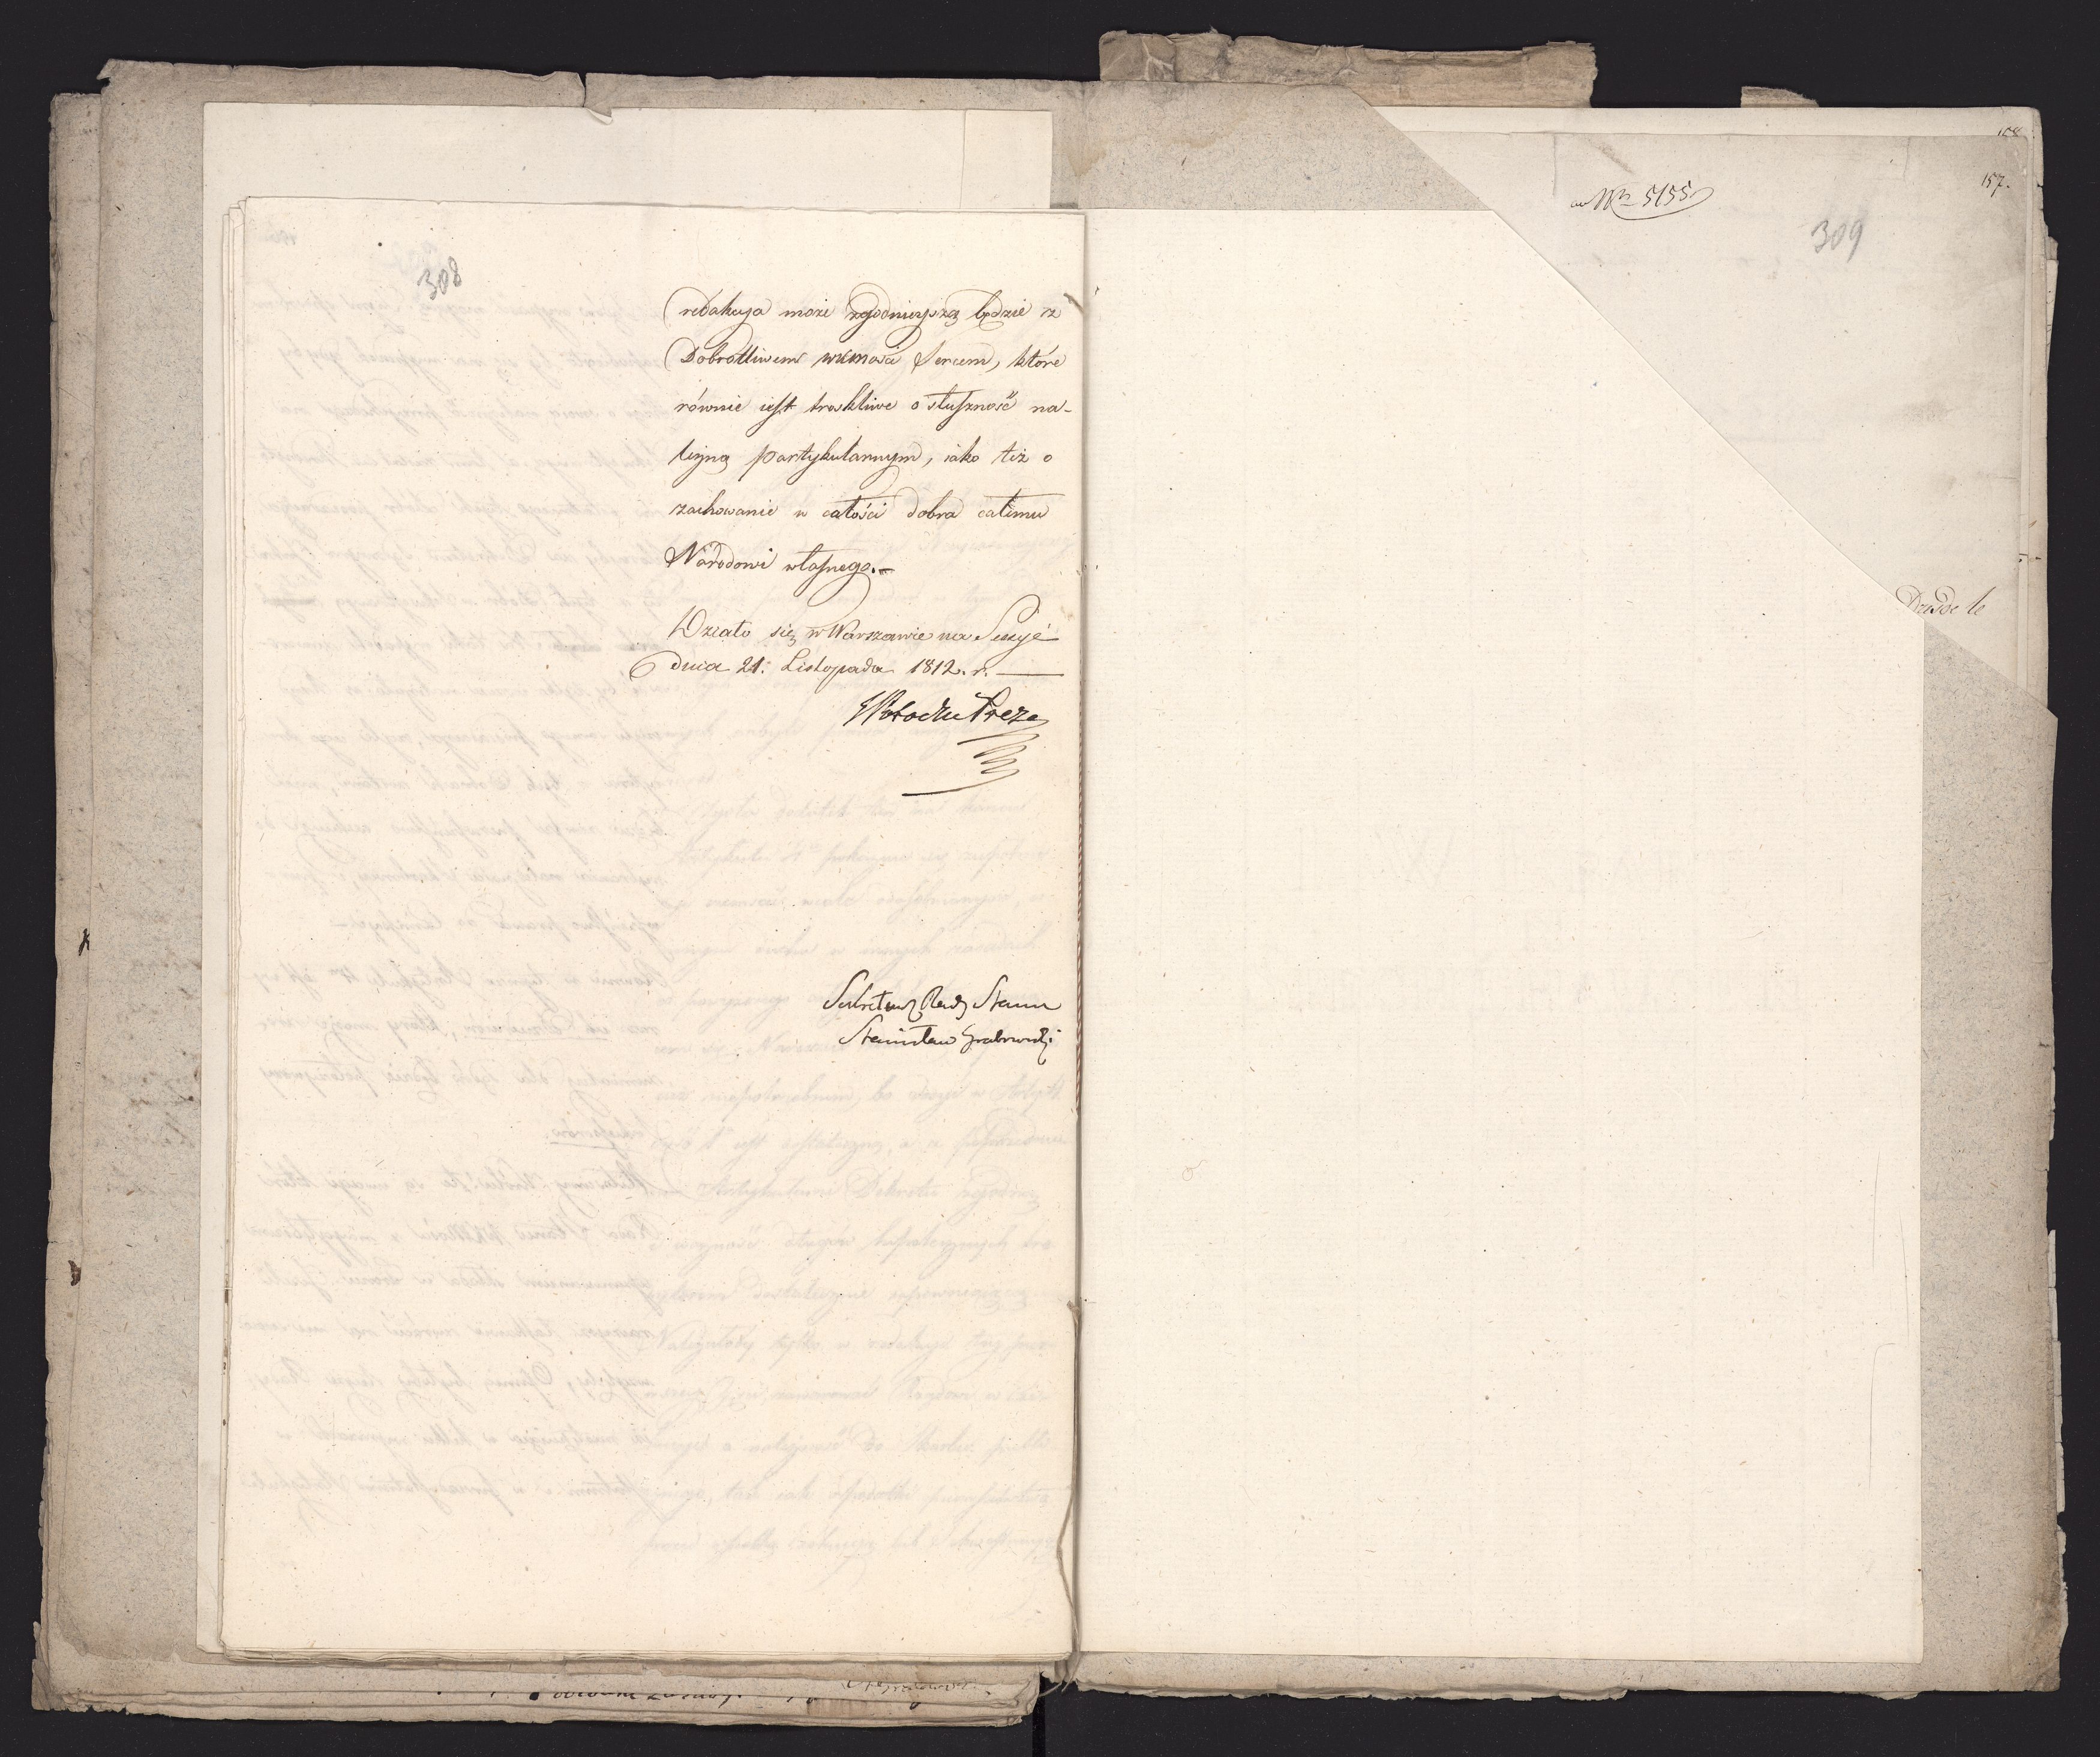 308
redakcya może zgodnieyszą będzie z
Dobrotliwem WKMości Sercem, które
równie iest troskliwe o słuszność na-
leżną partykularnym, iako też o
zachowanie w całości dobra całemu
Narodowi własnego.-
Działo się w Warszawie na Sessyi
dnia 21. Listopada 1812. r.
SPotocki Preze
Sekretarz Rady Stanu
Stanisław Grabowski
108
157.
ad Nr 5155
309
Dresde le